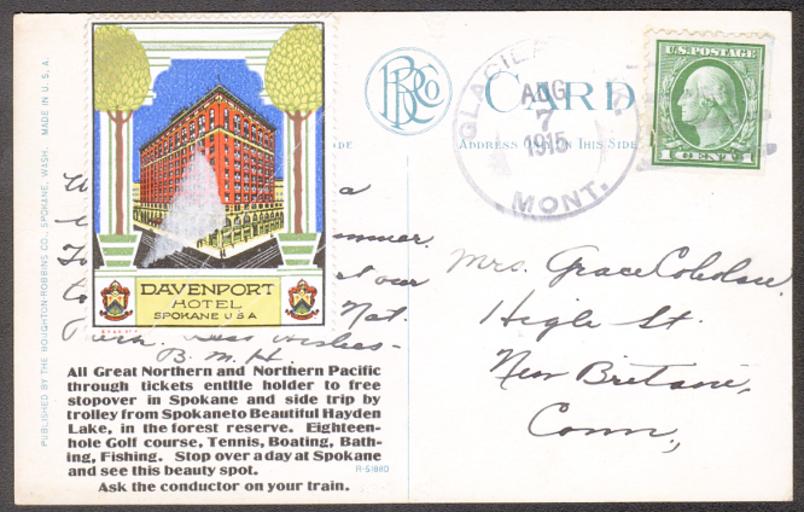 PUBLISHED BY THE BOUGHTON-ROBBINS CO., SPOKANE, WASH. MADE IN U.S.A.
DAVENPORT
HOTEL
SPOKANE U S A
B. M. H.
All Great Northern and Northern Pacific
through tickets entitle holder to free
stopover in Spokane and side trip by
trolley from Spokaneto Beautiful Hayden
Lake, in the forest reserve. Eighteen-
hole Golf course, Tennis, Boating, Bath-
ing, Fishing. Stop over a day at Spokane
and see this beauty spot.
Ask the conductor on your train.
R-51880
BRCo
CARD
ADDRESS ONLY ON THIS SIDE
AUG
7
1915
MONT.
U.S. POSTAGE
1 CENT 1
Mrs. Grace
High St.
New Britain,
Conn.,